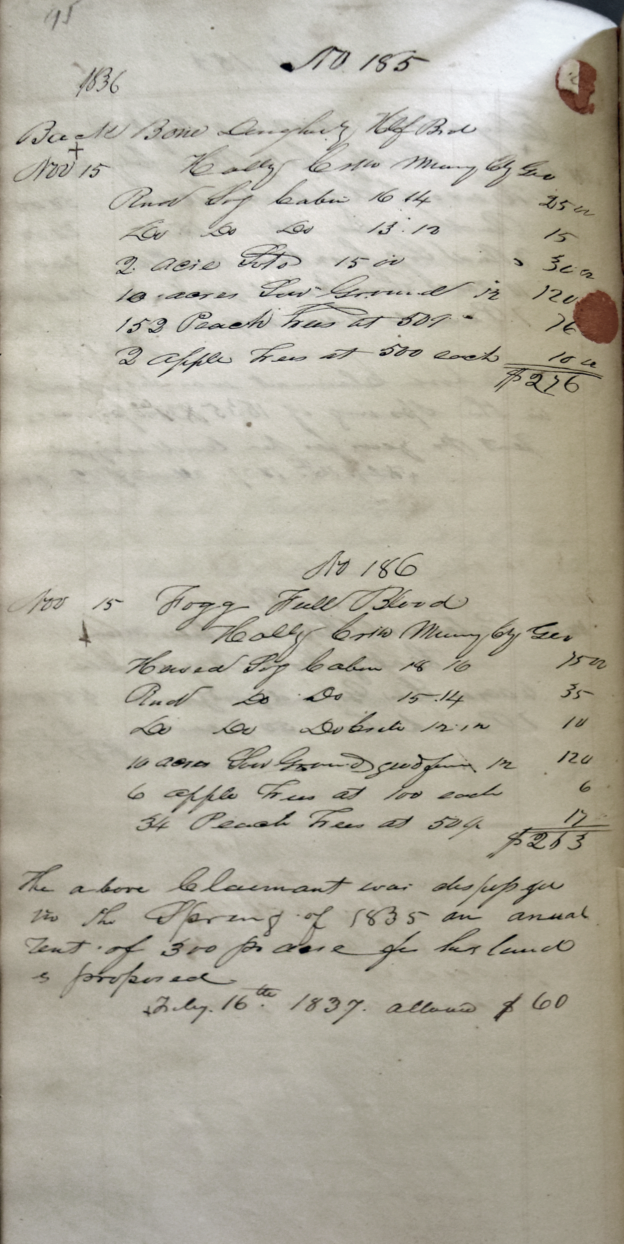 95
No. 185
1836
Back Bone Hlf Bd
+
Nov 15 Holly Crk Murry Cty Geo
Rnd Log Cabin 16 14 25 00
Do Do Do 13.12 15
2 acre Lots 15 00 30 00
10 acres Low Ground 12 120
152 Peach Trees at 50¢ 76
2 apple Trees at 500 each 10 00
$276
No 186
Nov 15 Fogg Full Blood
Holly Crk Murry Cty Geo
Hewed Log Cabin 18 16 75 00
Rnd Do Do 15.14 35
Do Do Do 12.12 10
10 acres Low Ground good 12 120
6 apple Trees at 100 each 6
34 Peach Trees at 50¢ 17
$263
The above Claimant was
in the Spring of 1835 an anual
rent of 300 pr acre for his land
is proposed
Feby. 16th 1837. allowed $60